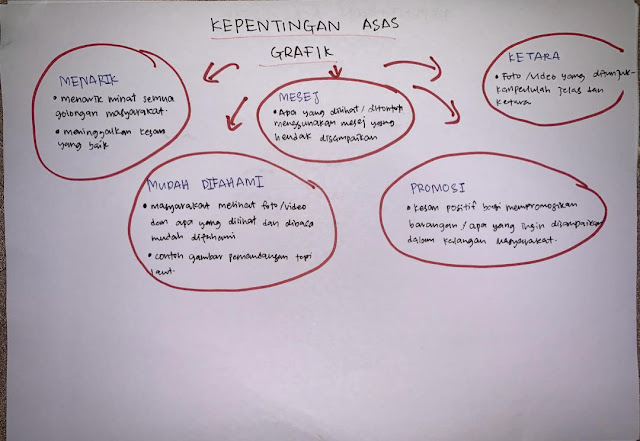 KEPENTINGAN ASAS
GRAFIK
MENARIK
• menarik minat semua
golongan masyarakat.
• meninggalkan kesan
yang baik
MESEJ
• Apa yang dilihat / ditonton
menggunakan mesej yang
hendak disampaikan
KETARA
• Foto / video yang ditunjuk-
kan perlulah jelas dan
ketara
MUDAH DIFAHAMI
• masyarakat melihat foto/video
dan apa yang dilihat dan dibaca
mudah difahami
• contoh gambar pemandangan tepi
laut.
PROMOSI
• kesan positif bagi mempromosikan
barangan / apa yang ingin disampaikan
dalam kalangan masyarakat.